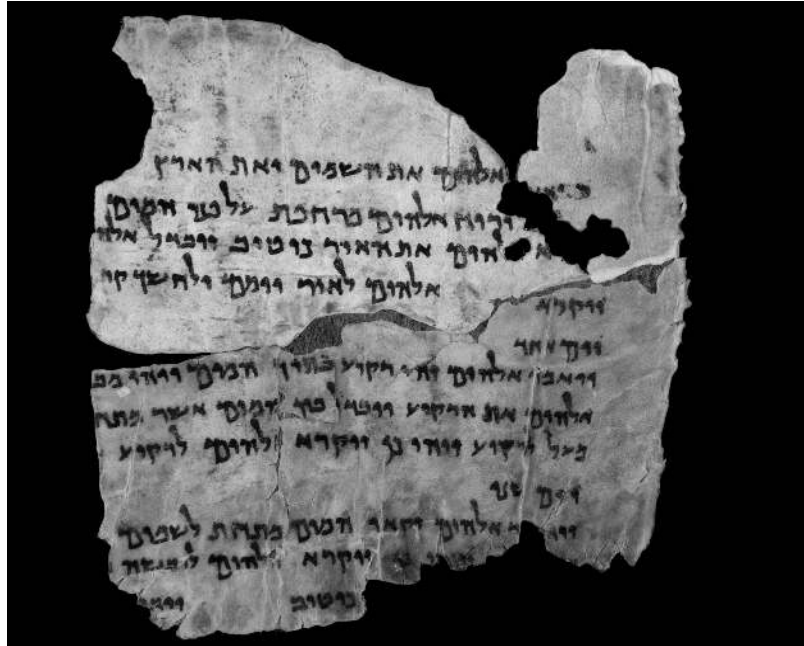 אלהים את השמים ואת הארץ
ורוח אלהים מרחפת על פני המים
אלהים את האור כי טוב ויבדל אלהי
ויקרא אלהים לאור יומם ולחשך קר
יום אחד
ויאמר אלהים יהי רקיע בתוך המים ויהי מב
אלהים את הרקיע ויבדל בין המים אשר מתח
מעל לרקיע ויהי כן ויקרא אלהים לרקיע
יום שני
ויאמר אלהים יקאו המים מתחת לשמים
ויקרא אלהים ליבשה
כי טוב ויאמ